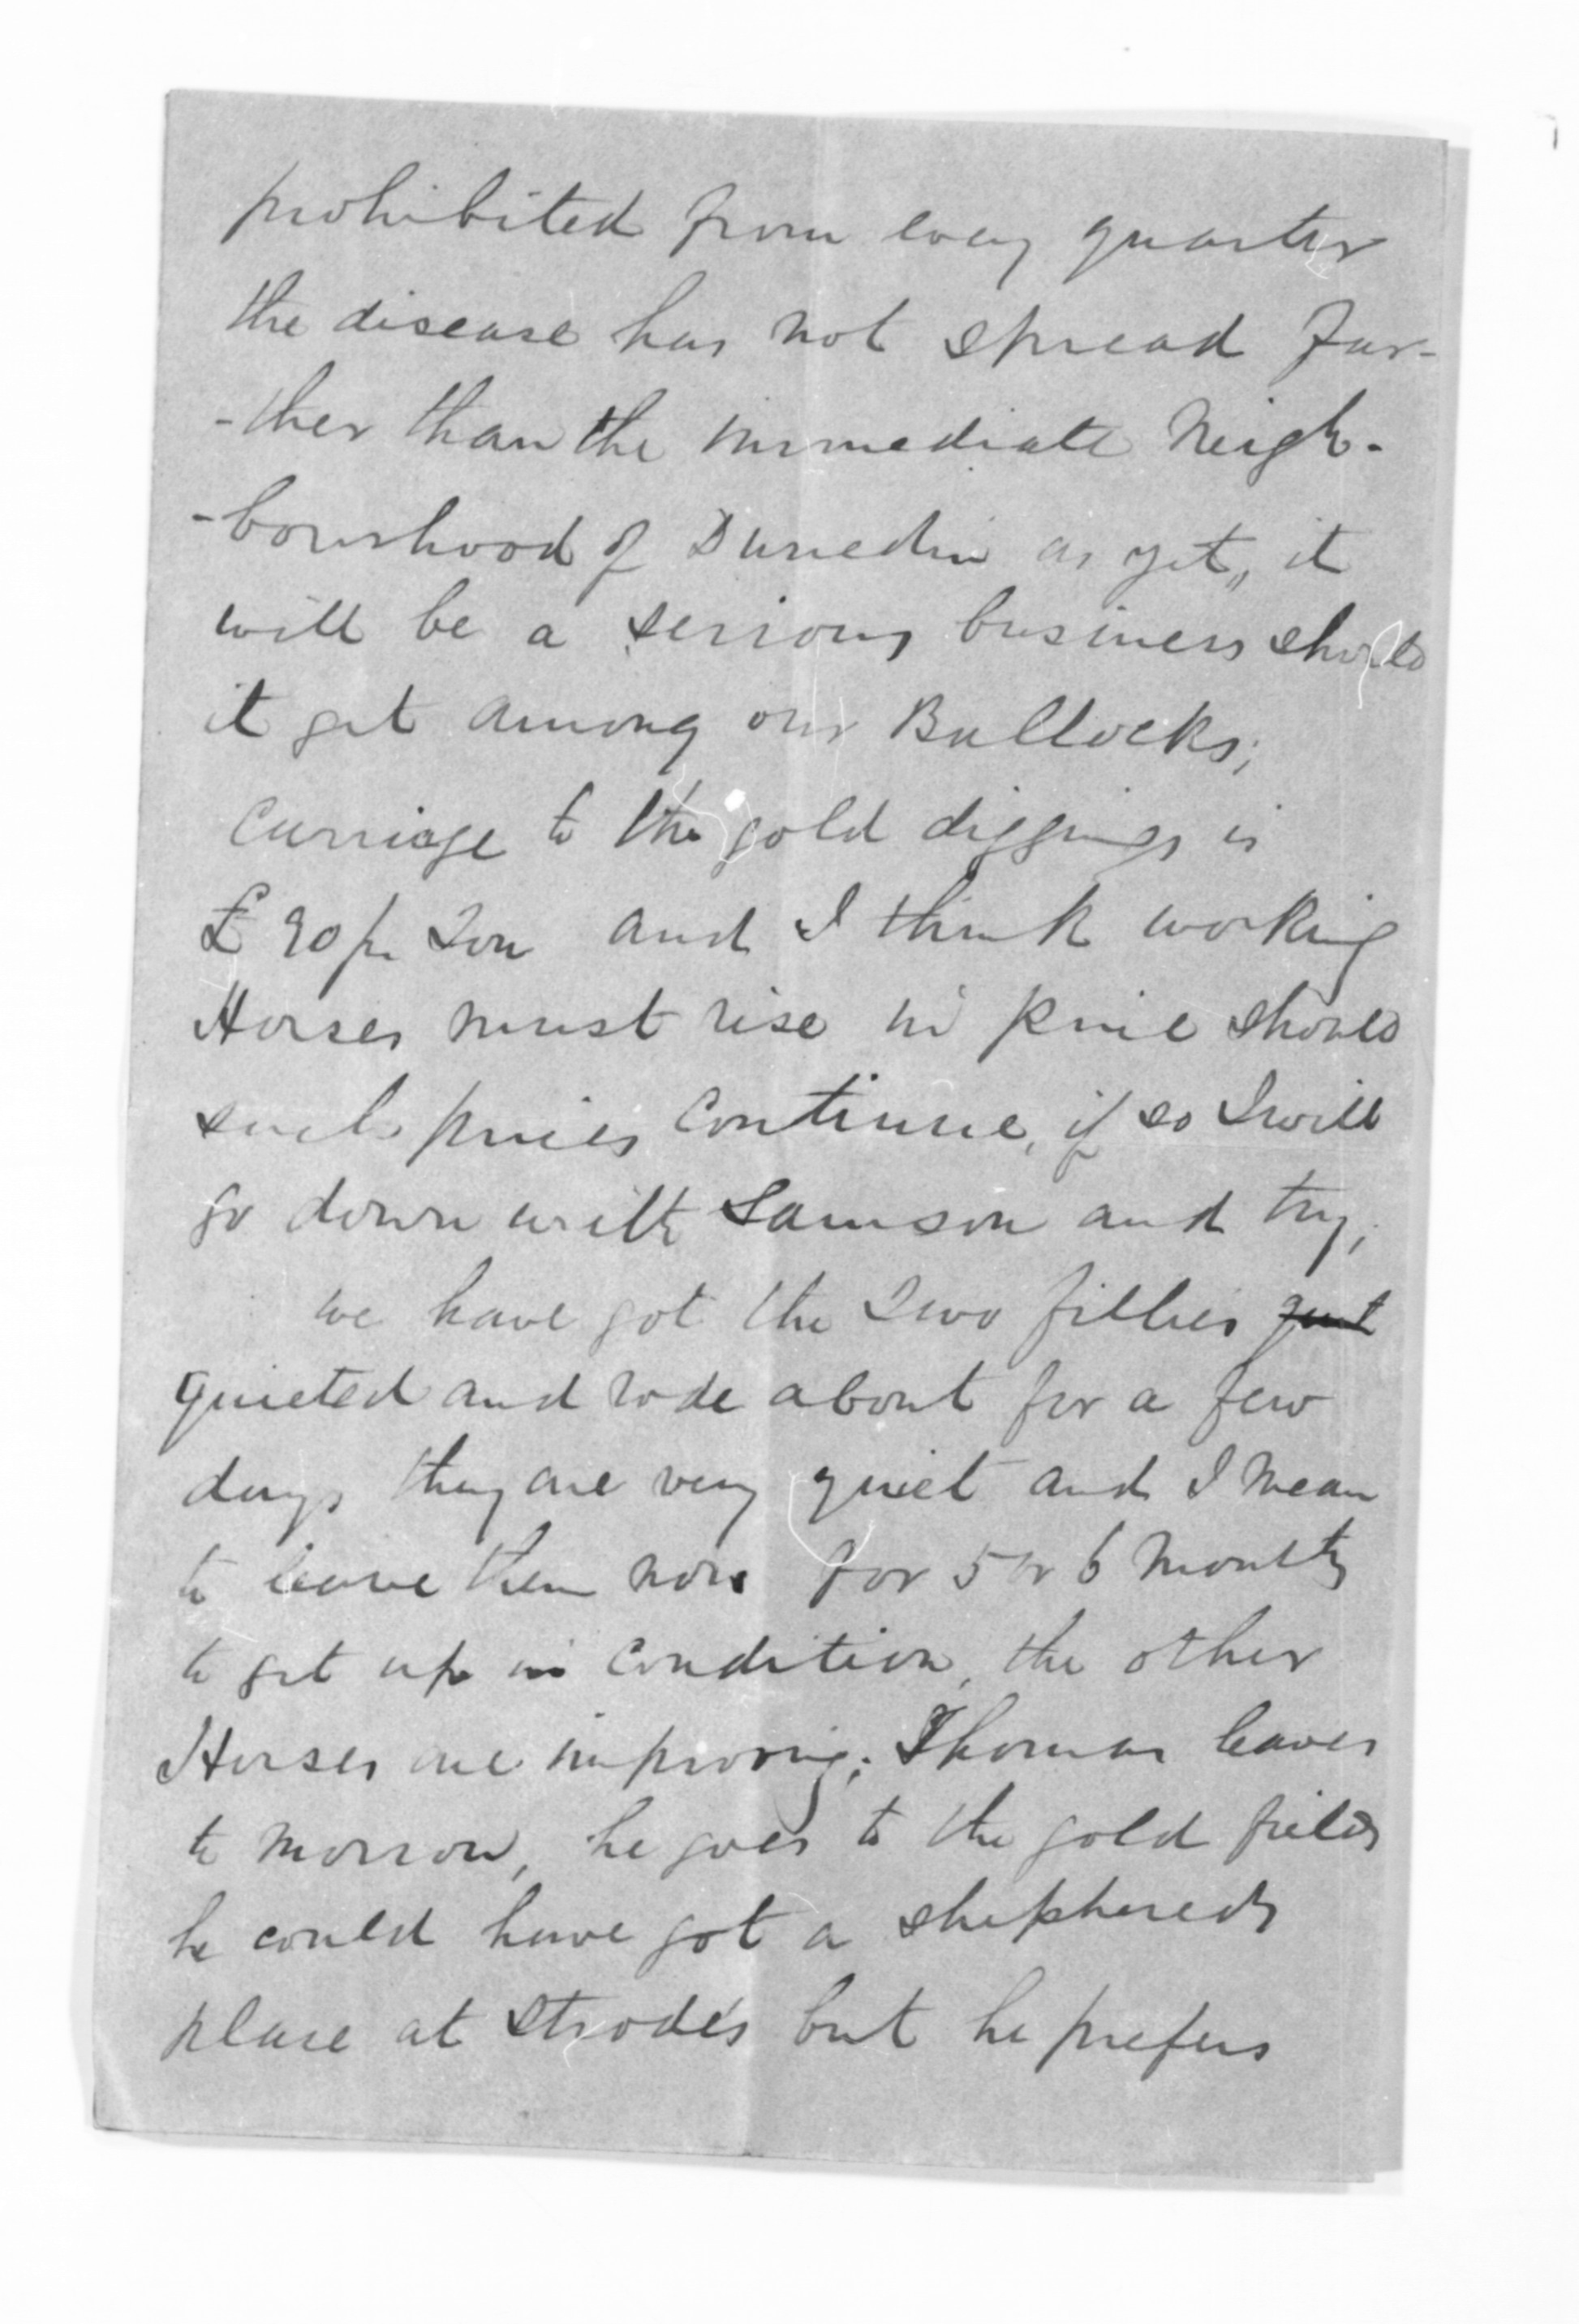 prohibited from every quarter
the disease has not spread fur-
-ther than the immediate Neigh-
-bourhood of Dunedin as yet,, it
will be a serious business should
it get among our Bullocks;
Carriage to the gold diggings is
£90 pr Ton and I think working
Horses must rise in price should
such prices continue, if so I will
go down with Samson and try;
we have got the Two fillies quit
quieted and rode about for a few
days they are very quiet and I mean
to leave them now for 5 or 6 Months
to get up in condition, the other
Horses are improving; Thomas leaves
to morrow, he goes to the gold fields
he could have got a shephereds
place at Strode's but he prefers